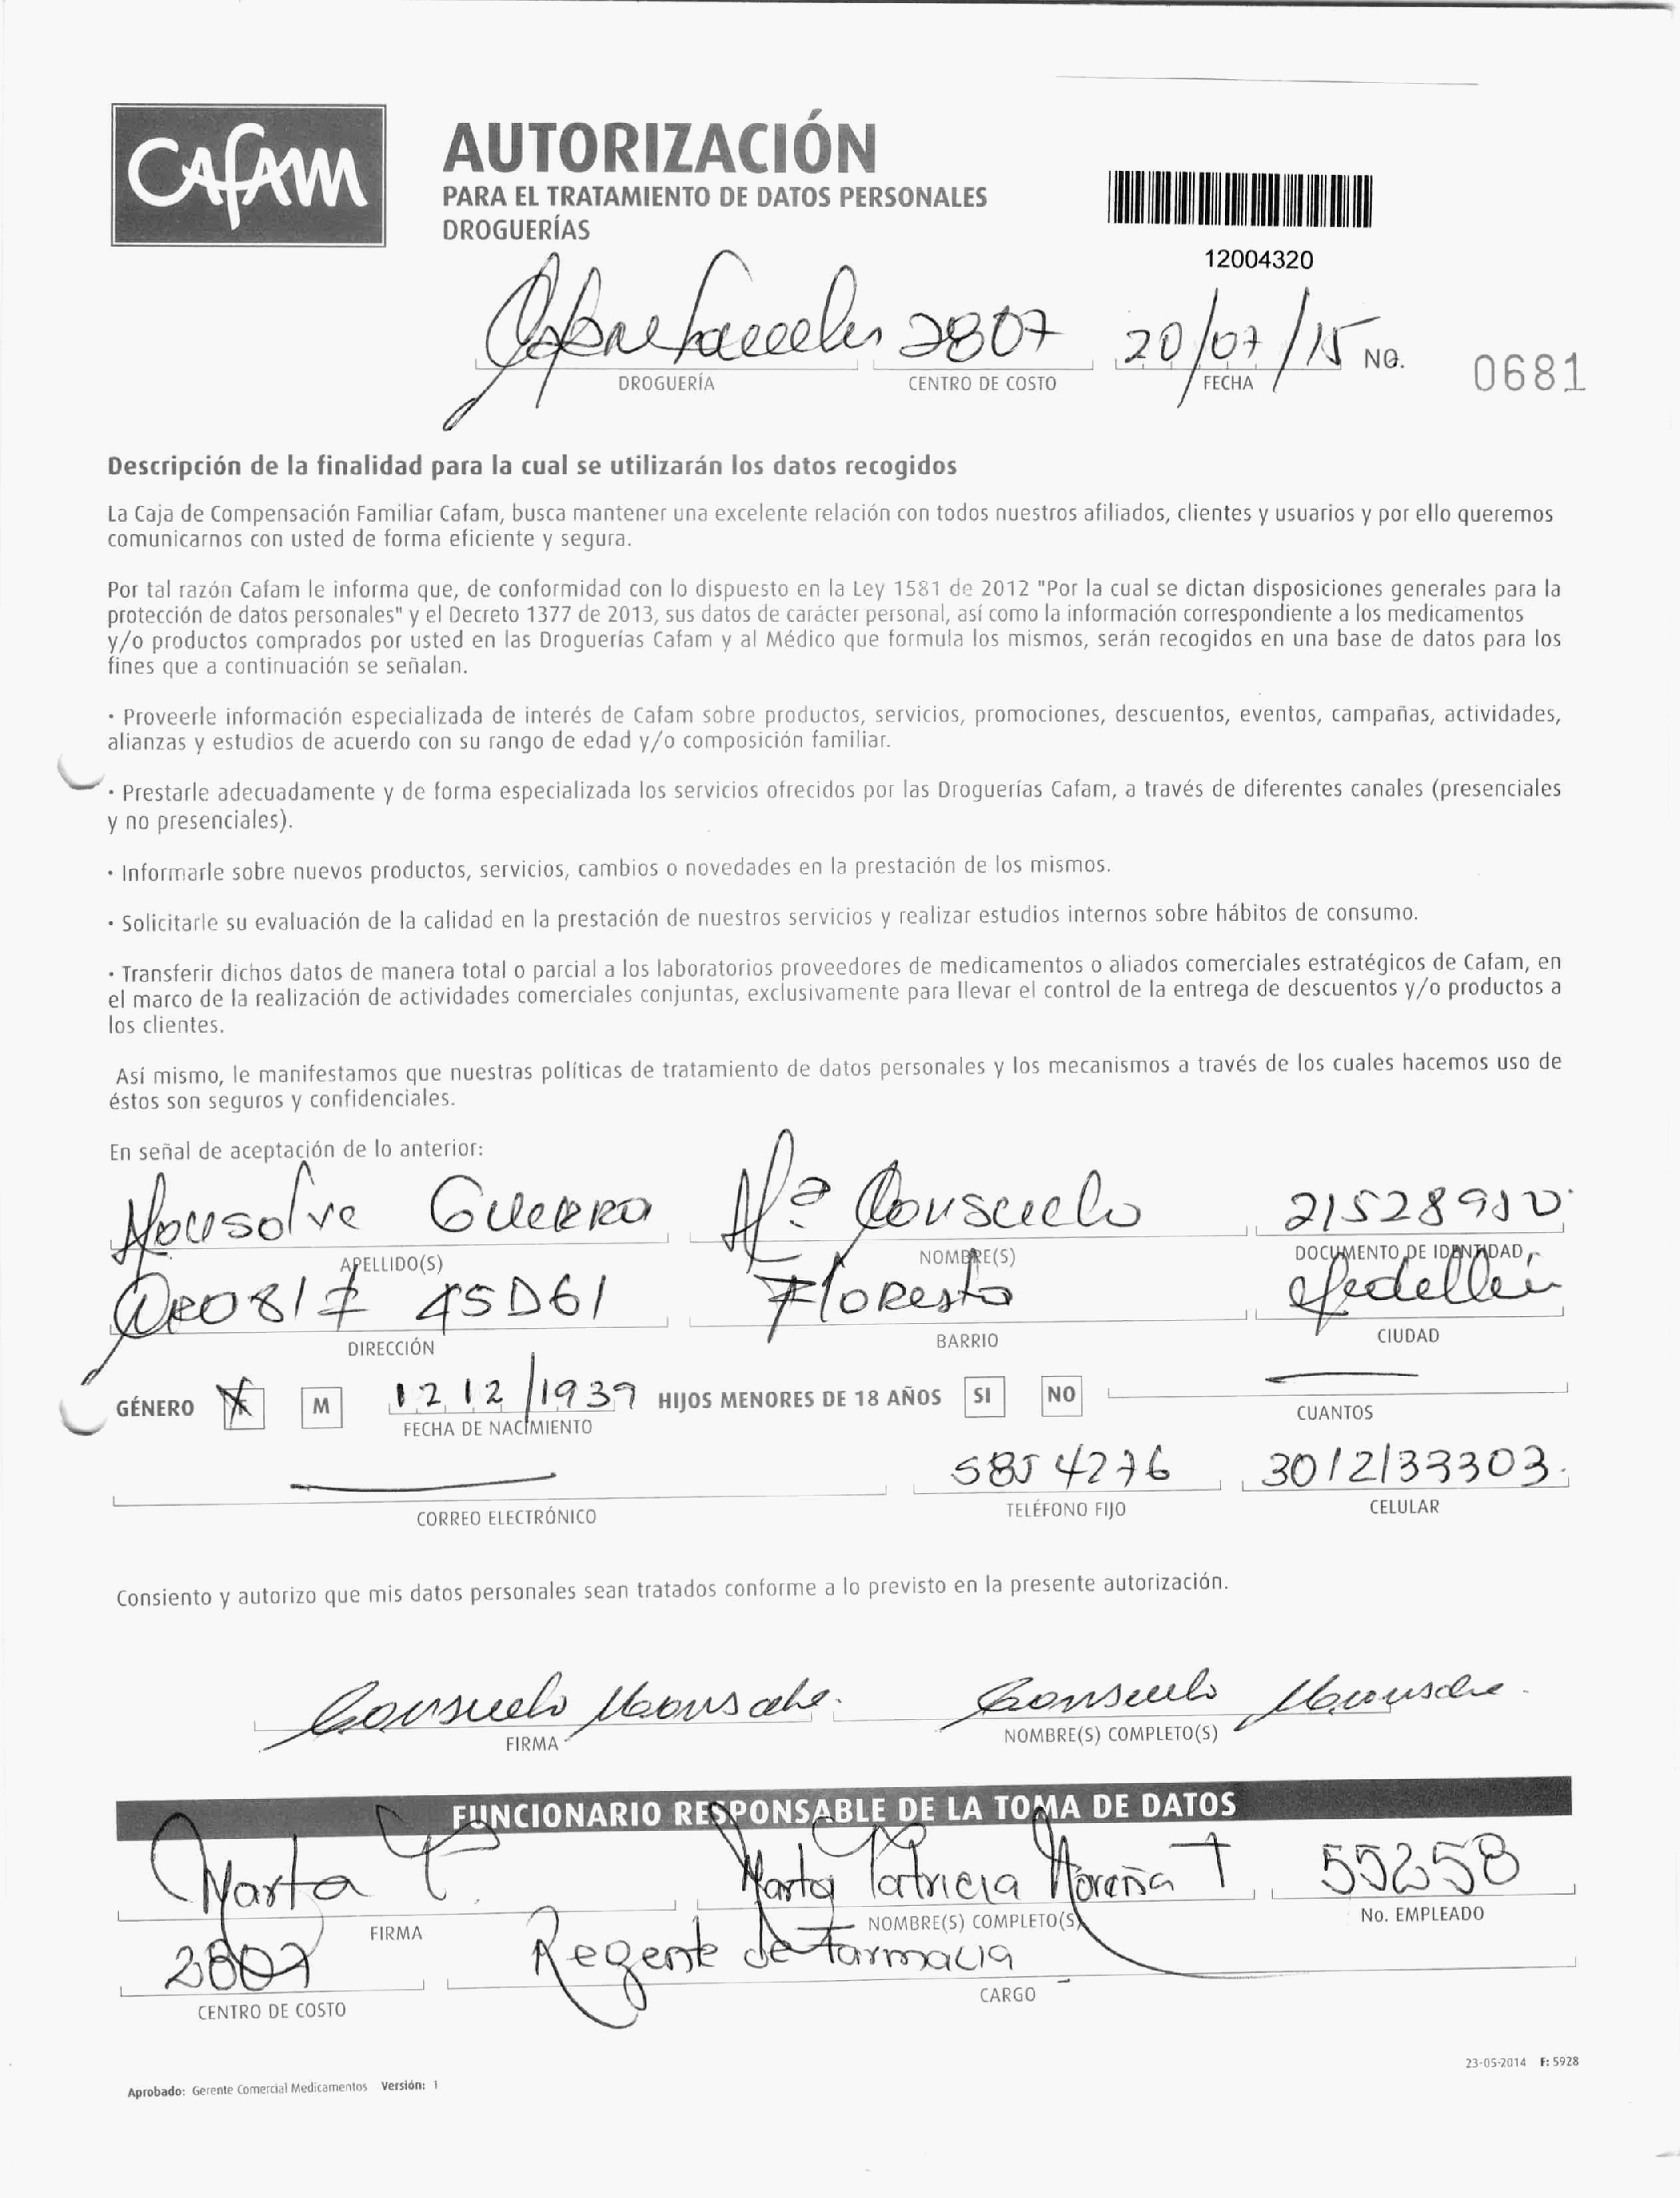 CAFAM
AUTORIZACIÓN
PARA EL TRATAMIENTO DE DATOS PERSONALES
DROGUERÍAS
12004320
2807 20/07/15 NO. 0681
DROGUERÍA CENTRO DE COSTO FECHA
Descripción de la finalidad para la cual se utilizarán los datos recogidos
La Caja de Compensación Familiar Cafam, busca mantener una excelente relación con todos nuestros afiliados, clientes y usuarios y por ello queremos
comunicarnos con usted de forma eficiente y segura.
Por tal razón Cafam le informa que, de conformidad con lo dispuesto en la Ley 1581 de 2012 "Por la cual se dictan disposiciones generales para la
protección de datos personales" y el Decreto 1377 de 2013, sus datos de carácter personal, así como la información correspondiente a los medicamentos
y/o productos comprados por usted en las Droguerías Cafam y al Médico que formula los mismos, serán recogidos en una base de datos para los
fines que a continuación se señalan.
· Proveerle información especializada de interés de Cafam sobre productos, servicios, promociones, descuentos, eventos, campañas, actividades,
alianzas y estudios de acuerdo con su rango de edad y/o composición familiar.
· Prestarle adecuadamente y de forma especializada los servicios ofrecidos por las Droguerías Cafam, a través de diferentes canales (presenciales
y no presenciales).
· Informarle sobre nuevos productos, servicios, cambios o novedades en la prestación de los mismos.
· Solicitarle su evaluación de la calidad en la prestación de nuestros servicios y realizar estudios internos sobre hábitos de consumo.
· Transferir dichos datos de manera total o parcial a los laboratorios proveedores de medicamentos o aliados comerciales estratégicos de Cafam, en
el marco de la realización de actividades comerciales conjuntas, exclusivamente para llevar el control de la entrega de descuentos y/o productos a
los clientes.
Así mismo, le manifestamos que nuestras políticas de tratamiento de datos personales y los mecanismos a través de los cuales hacemos uso de
éstos son seguros y confidenciales.
En señal de aceptación de lo anterior:
Monsalve Guerra Mª Consuelo 21528910
APELLIDO(S) NOMBRE(S) DOCUMENTO DE IDENTIDAD
45D61 Floresta Medellin
DIRECCIÓN BARRIO CIUDAD
GÉNERO X M 12 12/1939 HIJOS MENORES DE 18 AÑOS SI NO
FECHA DE NACIMIENTO CUANTOS
5854276 3012133303
CORREO ELECTRÓNICO TELÉFONO FIJO CELULAR
Consiento y autorizo que mis datos personales sean tratados conforme a lo previsto en la presente autorización.
Consuelo Monsalve. Consuelo Monsalve.
FIRMA NOMBRE(S) COMPLETO(S)
FUNCIONARIO RESPONSABLE DE LA TOMA DE DATOS
Marta Marta Patricia T 55258
FIRMA NOMBRE(S) COMPLETO(S) No. EMPLEADO
2807 Regente de farmacia
CENTRO DE COSTO CARGO
23-05-2014 F: 5928
Aprobado: Gerente Comercial Medicamentos Versión: 1